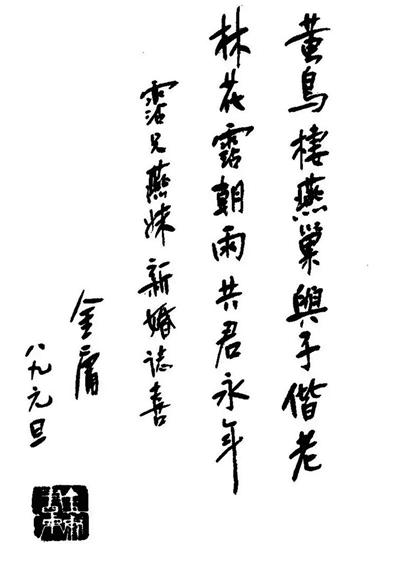 黃鳥棲燕巢與子偕老
林花霑朝雨共君永年
霑兄燕妹新婚誌喜
金庸
八九元旦